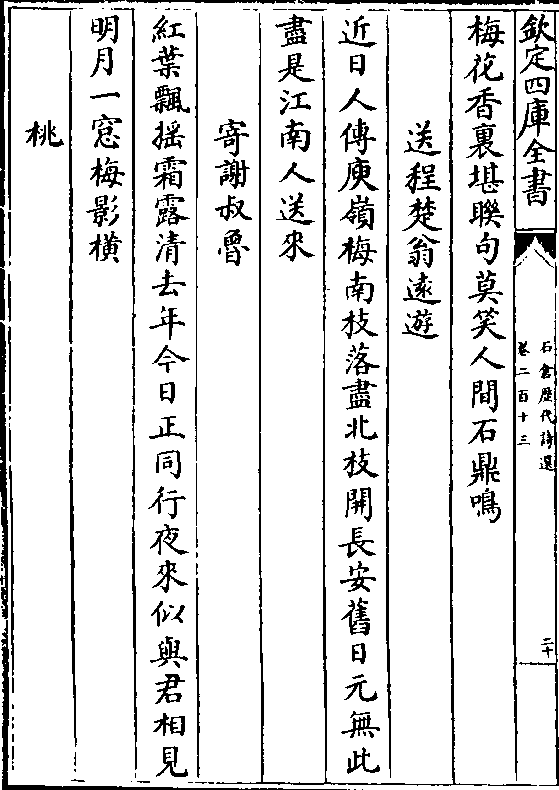 欽定四庫全書
石倉歷代詩選
卷二百十三
二十
梅花香裏堪聮句莫笑人間石鼎鳴
送程楚翁逺遊
近日人傳庾嶺梅南枝落盡北枝開長安舊日元無此
盡是江南人送來
寄謝叔魯
紅葉飄揺霜露清去年今日正同行夜來似與君相見
明月一窓梅影橫
桃